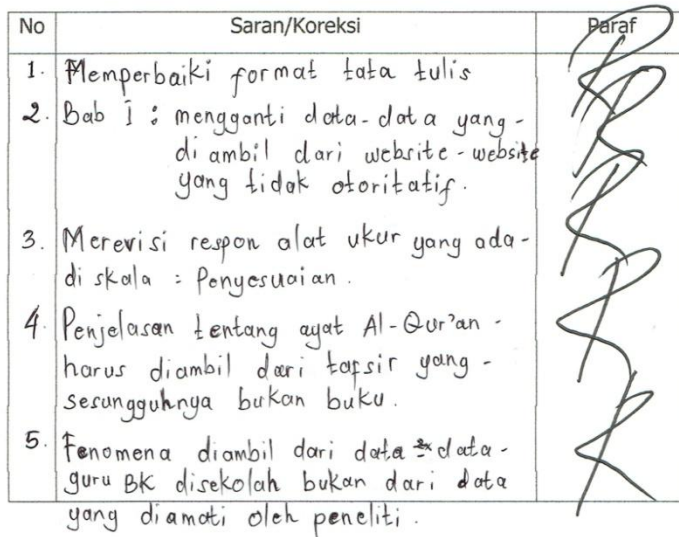 No Saran/Koreksi Paraf
1. Memperbaiki format tata tulis
2. Bab I : mengganti data-data yang-
di ambil dari website-website
yang tidak otoritatif.
3. Merevisi respon alat ukur yang ada-
di skala : Penyesuaian.
4. Penjelasan tentang ayat Al-Qur'an -
harus diambil dari tafsir yang -
sesungguhnya bukan buku.
5. Fenomena diambil dari data-data-
guru BK disekolah bukan dari data
yang diamati oleh peneliti.